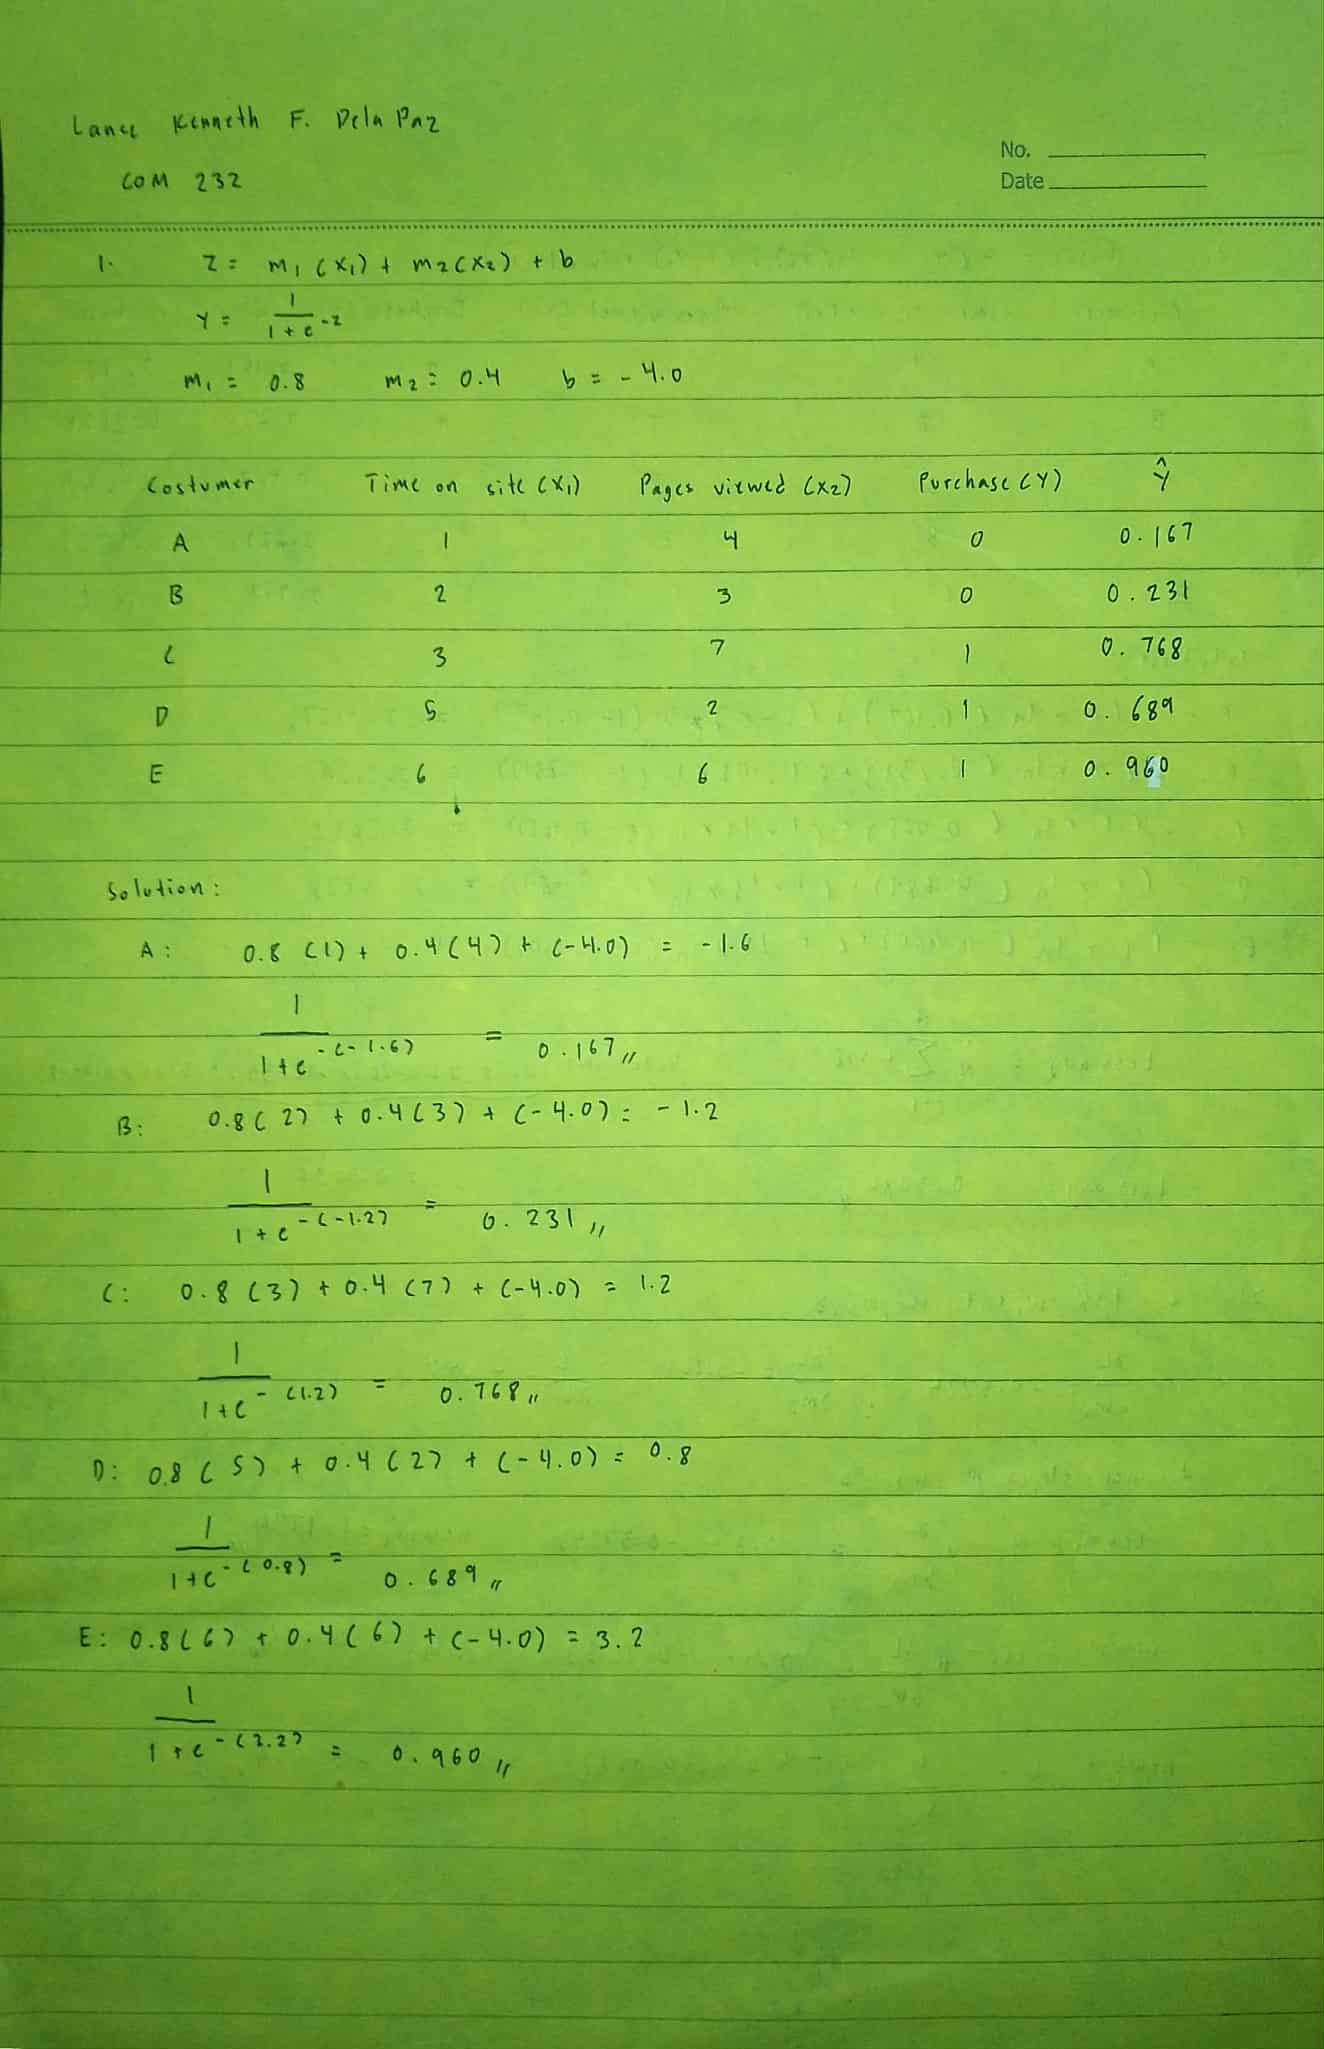 Lance Kenneth F. Dela Paz
COM 232
No.
Date
1. Z = m1(X1) + m2(X2) + b
Y = 1/1+e-z
m1 = 0.8 m2 = 0.4 b = -4.0
Costumer Time on site (X1) Pages viewed (X2) Purchase (Y) Ŷ
A 1 4 0 0.167
B 2 3 0 0.231
C 3 7 1 0.768
D 5 2 1 0.689
E 6 6 1 0.960
Solution:
A: 0.8 (1) + 0.4 (4) + (-4.0) = -1.6
1/1+e-(-1.6) = 0.167,,
B: 0.8 (2) + 0.4 (3) + (-4.0) = -1.2
1/1+e-(-1.2) = 0.231,,
C: 0.8 (3) + 0.4 (7) + (-4.0) = 1.2
1/1+e-(1.2) = 0.768,,
D: 0.8 (5) + 0.4 (2) + (-4.0) = 0.8
1/1+e-(0.8) = 0.689,,
E: 0.8 (6) + 0.4 (6) + (-4.0) = 3.2
1/1+e-(3.2) = 0.960,,